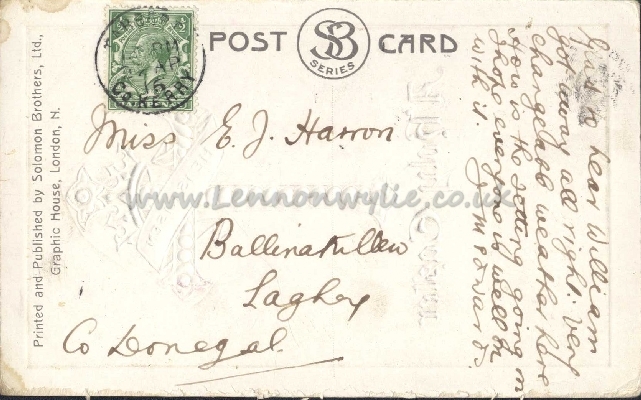 POST CARD
SB
SERIES
Printed and Published by Solomon Brothers, Ltd.,
Graphic House, London, N.
Miss E. J. Harron
www.Lennonwylie.co.uk
Ballinakillew
Laghey
Co Donegal
Glad to hear William
got away all right. Very
changeable weather here
How is the setting going on
I hope everyone is well
with is.